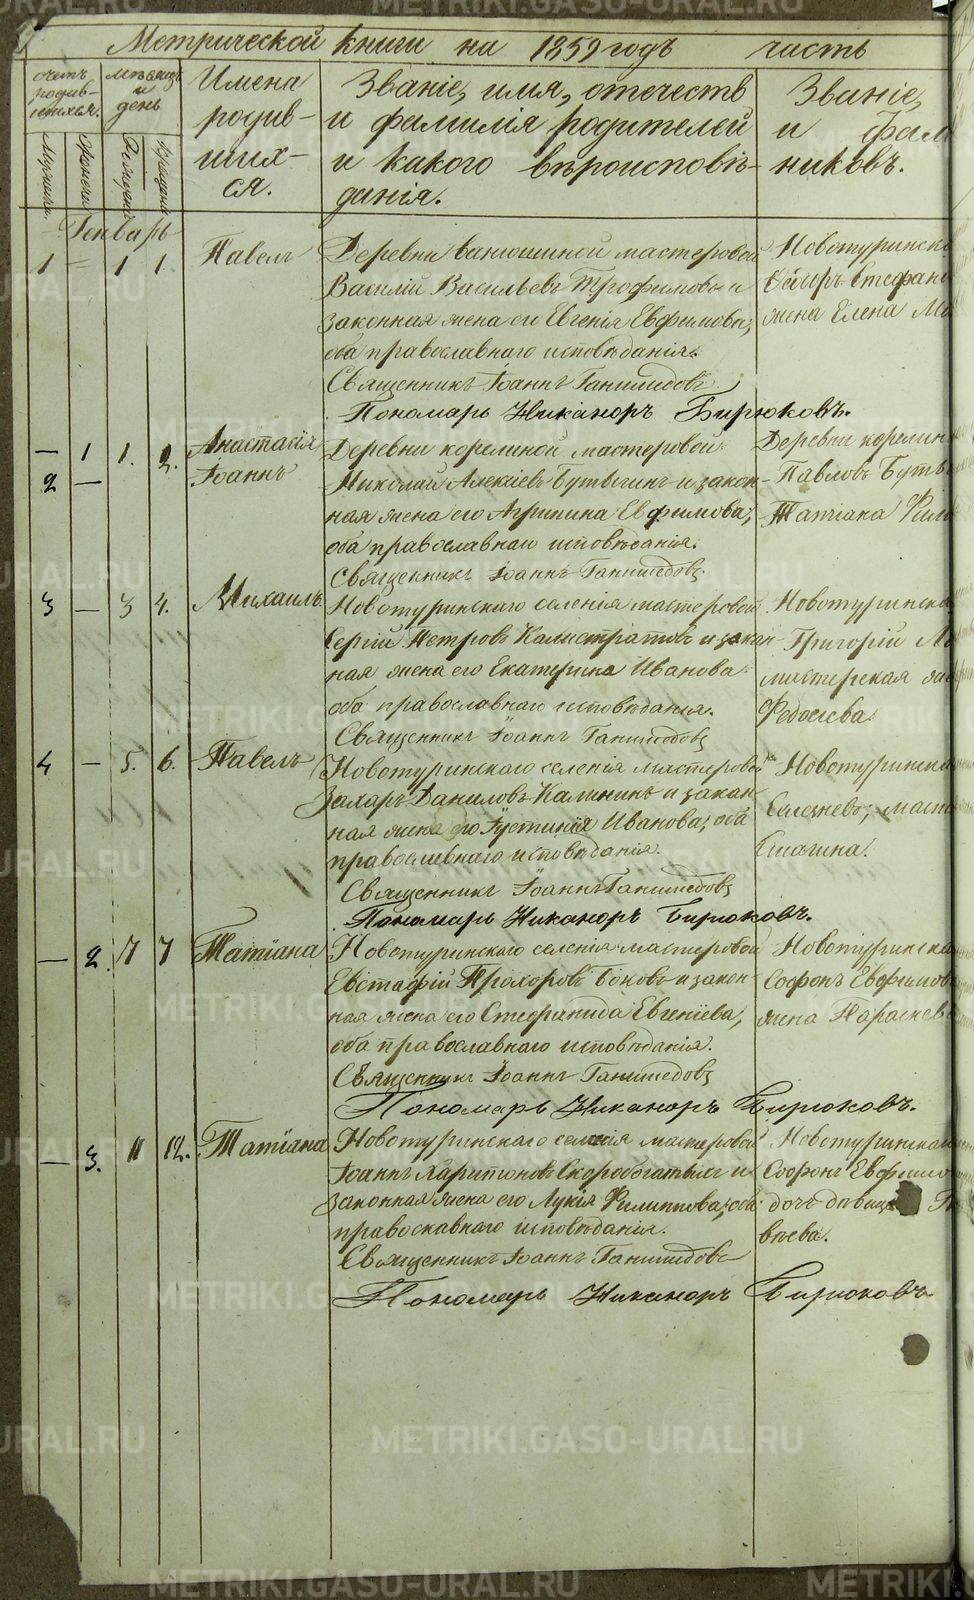 Метрической книги на 1859 годъ часть
счетъ родив-шихся.
Мѣсяцъ и день
Имена родив-шихся.
Званіе, имя, отечество
и фамилія родителей
и какого вѣроисповѣ-
данія.
Званіе,
и фам
никовъ.
Мужеска.
Женска
Рожденія
Крещенія
Генварь
1 — 1 1. Павелъ
Деревни Ванюшиной мастеровой
Василій Васильевъ Трофимовъ и
законная жена его Евгенія Евфимова;
оба православнаго исповѣданія.
Священникъ Іоаннъ Ганимедовъ
Пономарь Никаноръ Бирюковъ.
Новотуринск
Стефан
жена Елена Ма
— 1 1. 2. Анастасія
2 — Іоаннъ
Деревни корелиной мастеровой
Николай Алексіевъ Бутыгинъ и закон-
ная жена его Агрипина Евфимова;
оба православнаго исповѣданія.
Священникъ Іоаннъ Ганимедовъ
Деревни корелин
Павловъ Буты
Татіана Фили
3 — 3 4. Михаилъ.
Новотуринскаго селенія мастеровой
Сергій Петровъ Калистратовъ и закон-
ная жена его Екатерина Иванова
оба православнаго исповѣданія.
Священникъ Іоаннъ Ганимедовъ
Новотуринска
Григорій Ма
мастерская
Федосѣева.
4 — 5. 6. Павелъ
Новотуринскаго селенія мастеровой
Захаръ Даниловъ Калининъ и закон-
ная жена его Іустинія Иванова; оба
православнаго исповѣданія.
Священникъ Іоаннъ Ганимедовъ
Пономарь Никаноръ Бирюковъ.
Новотуринска
Селезневъ; маст
— 2. 7 7 Татіана
Новотуринскаго селенія мастеровой
Евстафій Прохоровъ Боковъ и закон-
ная жена его Стефанида Евгеніева,
оба православнаго исповѣданія.
Священникъ Іоаннъ Ганимедовъ
Пономарь Никаноръ Бирюковъ.
Новотуринска
Софонъ Евфимов
жена Параскев
— 3. 11 12. Татіана
Новотуринскаго селенія мастеровой
Іоаннъ Харитоновъ Скоробогатыхъ и
законная жена его Лукія Филиппова; оба
православнаго исповѣданія.
Священникъ Іоаннъ Ганимедовъ
Пономарь Никаноръ Бирюковъ
Новотуринска
Софонъ Евфимо
дочь дѣвица
вѣева.
METRIKI.GASO-URAL.RU